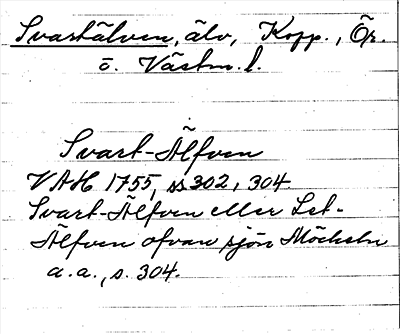 Svartälven, älv, Kopp., Ör.
o. Västm. l.
Svart-Älfven
VAH 1755, ss 302, 304
Svart-Älfven eller Let-
Älfven ofvan sjön Möckeln
a.a., s. 304.